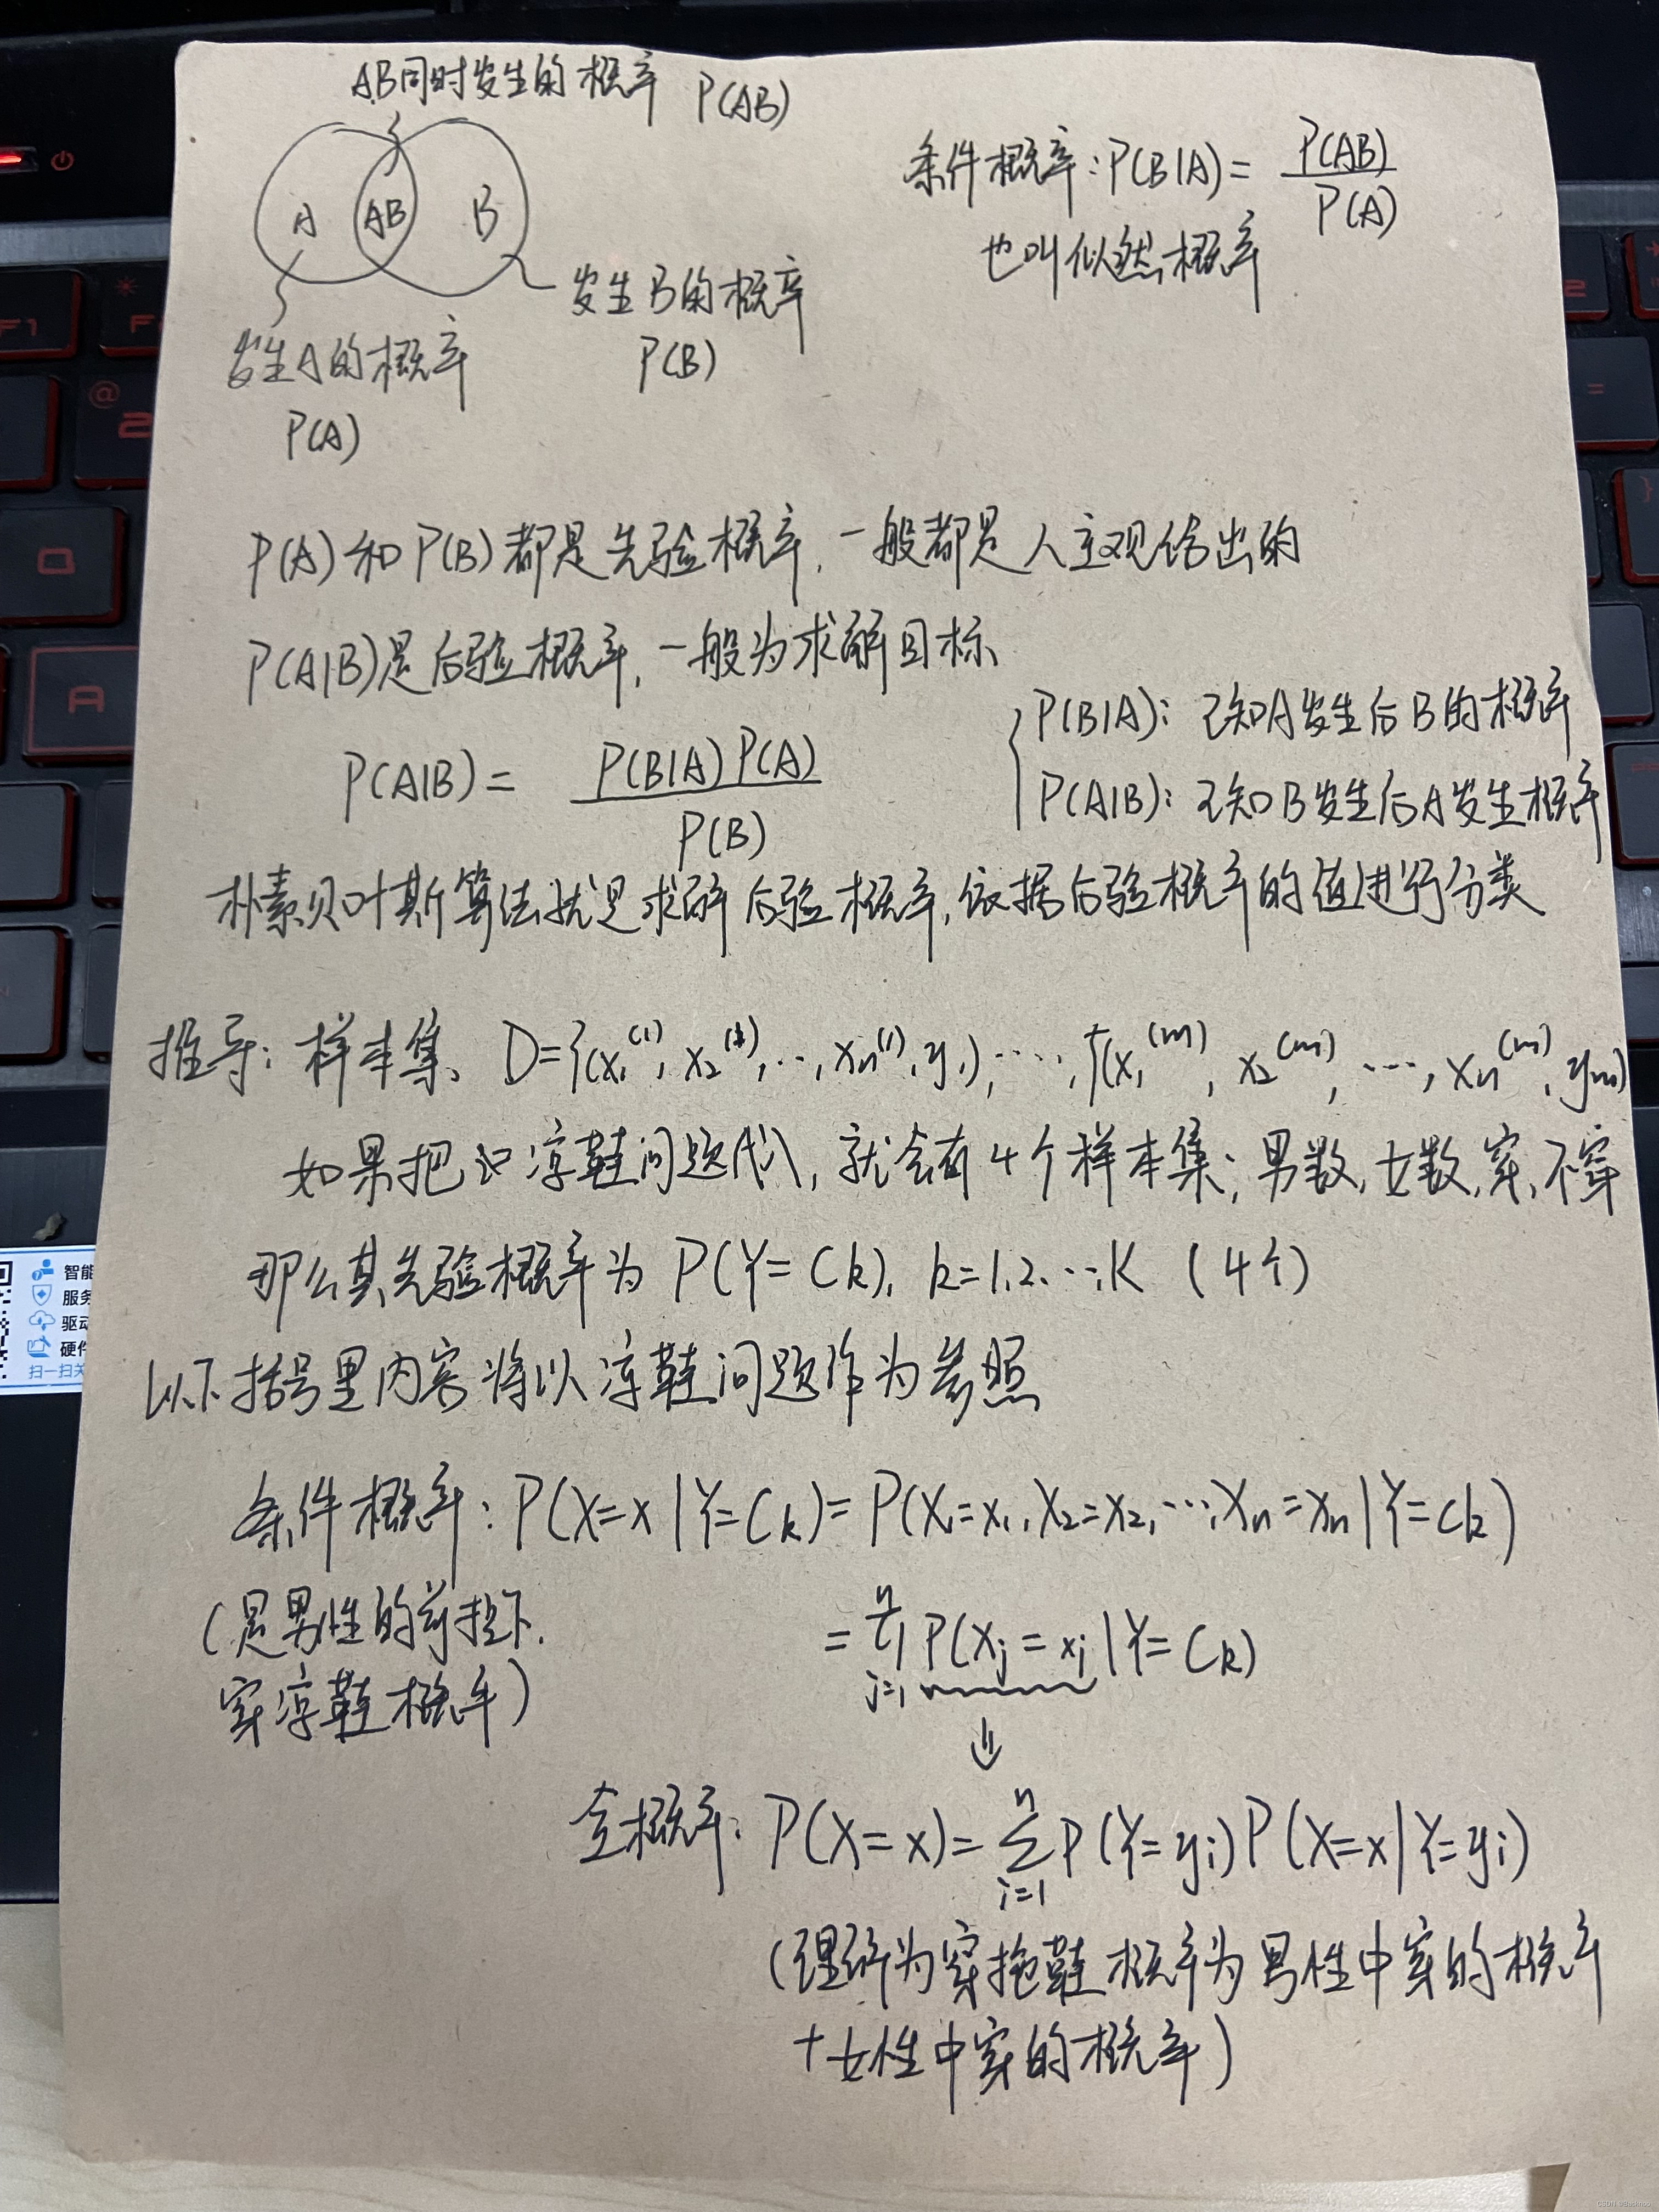 AB同时发生的概率 P(AB)
A AB B
条件概率:P(B|A)= P(AB)/P(A)
也叫似然概率
发生B的概率
P(B)
发生A的概率
P(A)
P(A)和P(B)都是先验概率,一般都是人主观给出的
P(A|B)是后验概率,一般为求解目标
P(A|B)= P(B|A)P(A)/P(B)
P(B|A):已知A发生后B的概率
P(A|B):已知B发生后A发生概率
朴素贝叶斯算法就是求解后验概率,依据后验概率的值进行分类
推导:样本集 D={(x₁⁽¹⁾,x₂⁽¹⁾,…,xn⁽¹⁾,y₁),…,(x₁⁽ᵐ⁾,x₂⁽ᵐ⁾,…,xn⁽ᵐ⁾,ym)
如果把 凉鞋问题代入,就会有4个样本集:男数,女数,穿,不穿
那么其先验概率为P(Y=Ck), k=1,2…,K (4个)
以下括号里内容将以凉鞋问题作为参照
条件概率:P(X=x|Y=Ck)=P(X₁=x₁,X₂=x₂,…,Xn=xn|Y=Ck)
(是男性的前提下,
穿凉鞋概率)
=∏ⁿj=1 P(Xj=xj|Y=Ck)
⇓
全概率:P(X=x)=∑ⁿi=1 P(Y=yi)P(X=x|Y=yi)
(理解为穿拖鞋概率为男性中穿的概率
+女性中穿的概率)
F1
@
2
Q
A
=
智能
服务
驱动
硬件
扫一扫关